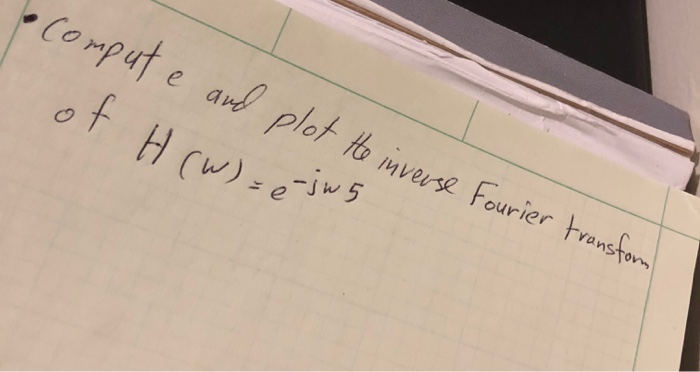 • Compute and plot the inverse Fourier transform
of H(w) = e^-jw5